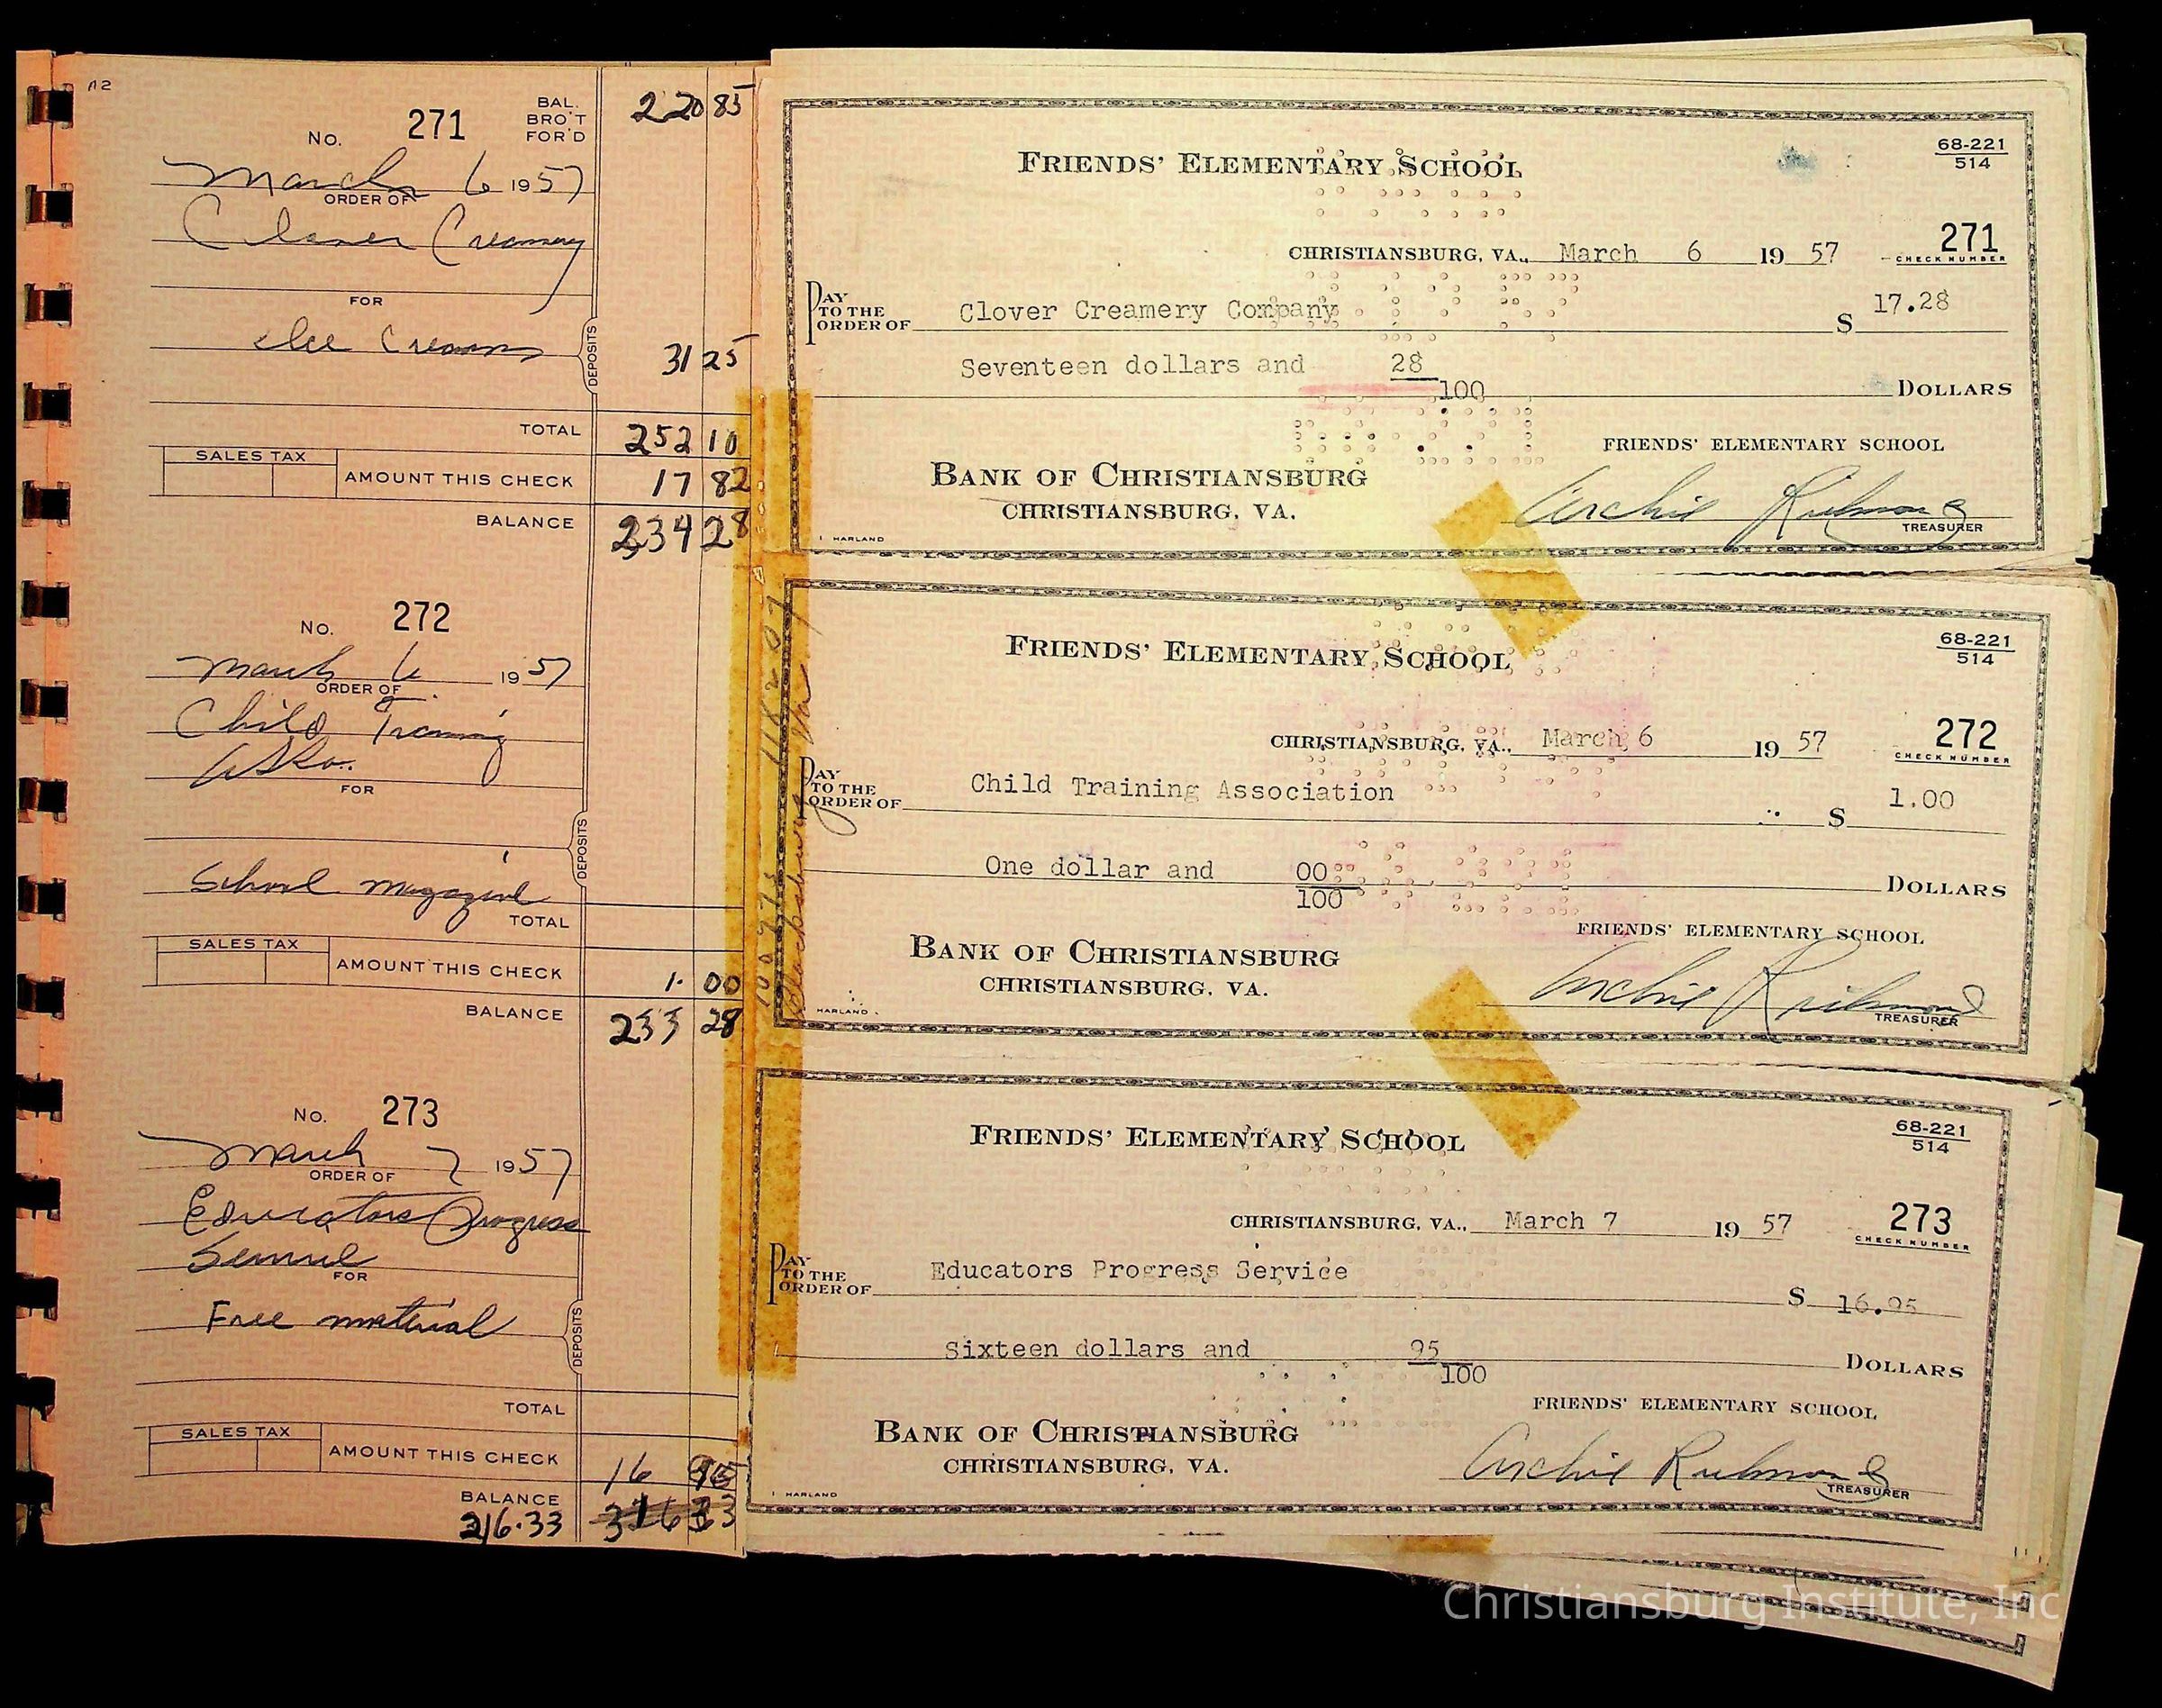 112
No. 271
BAL. BRO'T FOR'D 220 85
March 6 1957
ORDER OF
Clover Creamery
FOR
Ice Cream
DEPOSITS 31 25
TOTAL 252 10
SALES TAX
AMOUNT THIS CHECK 17 82
BALANCE 234 28
No. 272
March 6 1957
ORDER OF
Child Training
Asso.
FOR
DEPOSITS
School magazine
TOTAL
SALES TAX
AMOUNT THIS CHECK 1.00
BALANCE 233 28
No. 273
March 7 1957
ORDER OF
Educators Progress
Service
FOR
Free material
DEPOSITS
TOTAL
SALES TAX
AMOUNT THIS CHECK 16 95
BALANCE
216.33
FRIENDS' ELEMENTARY SCHOOL
68-221
514
CHRISTIANSBURG, VA., March 6 1957
271
CHECK NUMBER
PAY TO THE ORDER OF Clover Creamery Company $ 17.28
Seventeen dollars and 28/100 DOLLARS
FRIENDS' ELEMENTARY SCHOOL
BANK OF CHRISTIANSBURG
CHRISTIANSBURG, VA.
Archie Richmond
TREASURER
HARLAND
FRIENDS' ELEMENTARY SCHOOL
68-221
514
CHRISTIANSBURG, VA., March 6 1957
272
CHECK NUMBER
PAY TO THE ORDER OF Child Training Association $ 1.00
One dollar and 00/100 DOLLARS
FRIENDS' ELEMENTARY SCHOOL
BANK OF CHRISTIANSBURG
CHRISTIANSBURG, VA.
Archie Richmond
TREASURER
HARLAND
Blacksburg Va
FRIENDS' ELEMENTARY SCHOOL
68-221
514
CHRISTIANSBURG, VA., March 7 1957
273
CHECK NUMBER
PAY TO THE ORDER OF Educators Progress Service $ 16.95
Sixteen dollars and 95/100 DOLLARS
FRIENDS' ELEMENTARY SCHOOL
BANK OF CHRISTIANSBURG
CHRISTIANSBURG, VA.
Archie Richmond
TREASURER
HARLAND
Christiansburg Institute, Inc